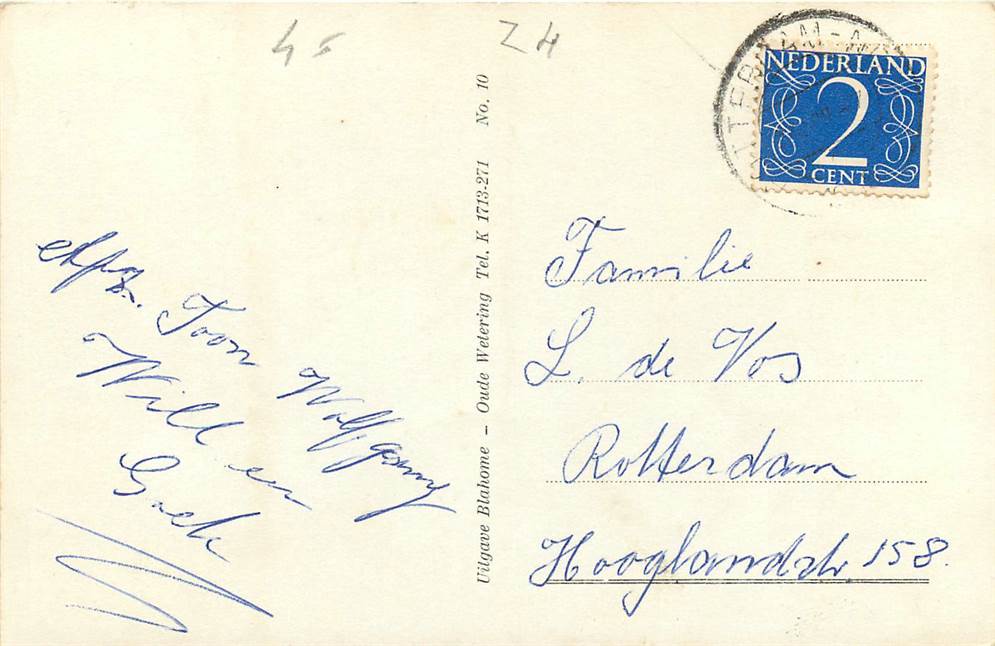 4 -
Z H
NEDERLAND
2
CENT
Afz. Toon Wolfgang
Will en
Sack
Uitgave Blahome – Oude Wetering Tel. K 1713-271 No. 10
Familie
L. de Vos
Rotterdam
Hooglandstr. 158.